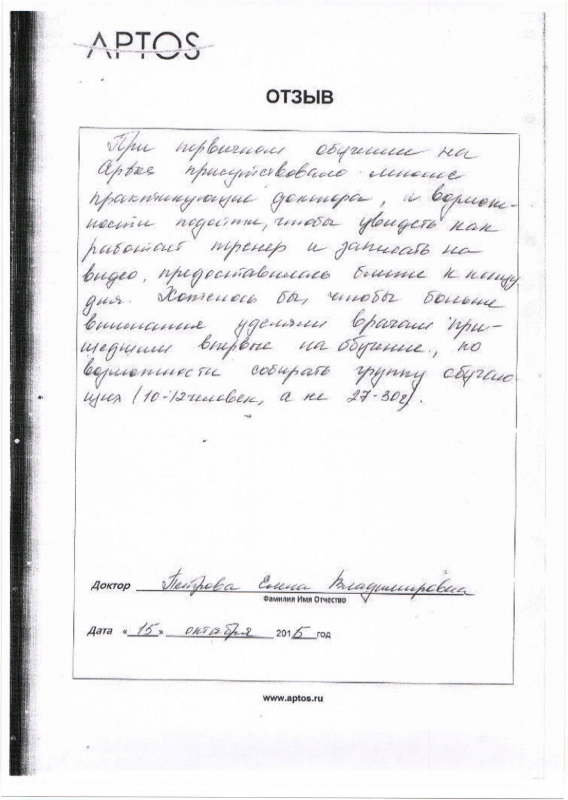 APTOS
ОТЗЫВ
При первичном обучении на
присутствовало многие
практикующие доктора, и возмож-
ности подойти, чтобы увидеть как
работает тренер и записать на
видео, предоставилось ближе к концу
дня. Хотелось бы, чтобы больше
внимания уделяли врачам при-
шедшим впервые на обучение, по
возможности собирать группу обучаю-
щих (10-12 человек, а не 27-30ч).
Доктор Петрова Елена Владимировна
Фамилия Имя Отчество
Дата «15» октября 2015 год
www.aptos.ru